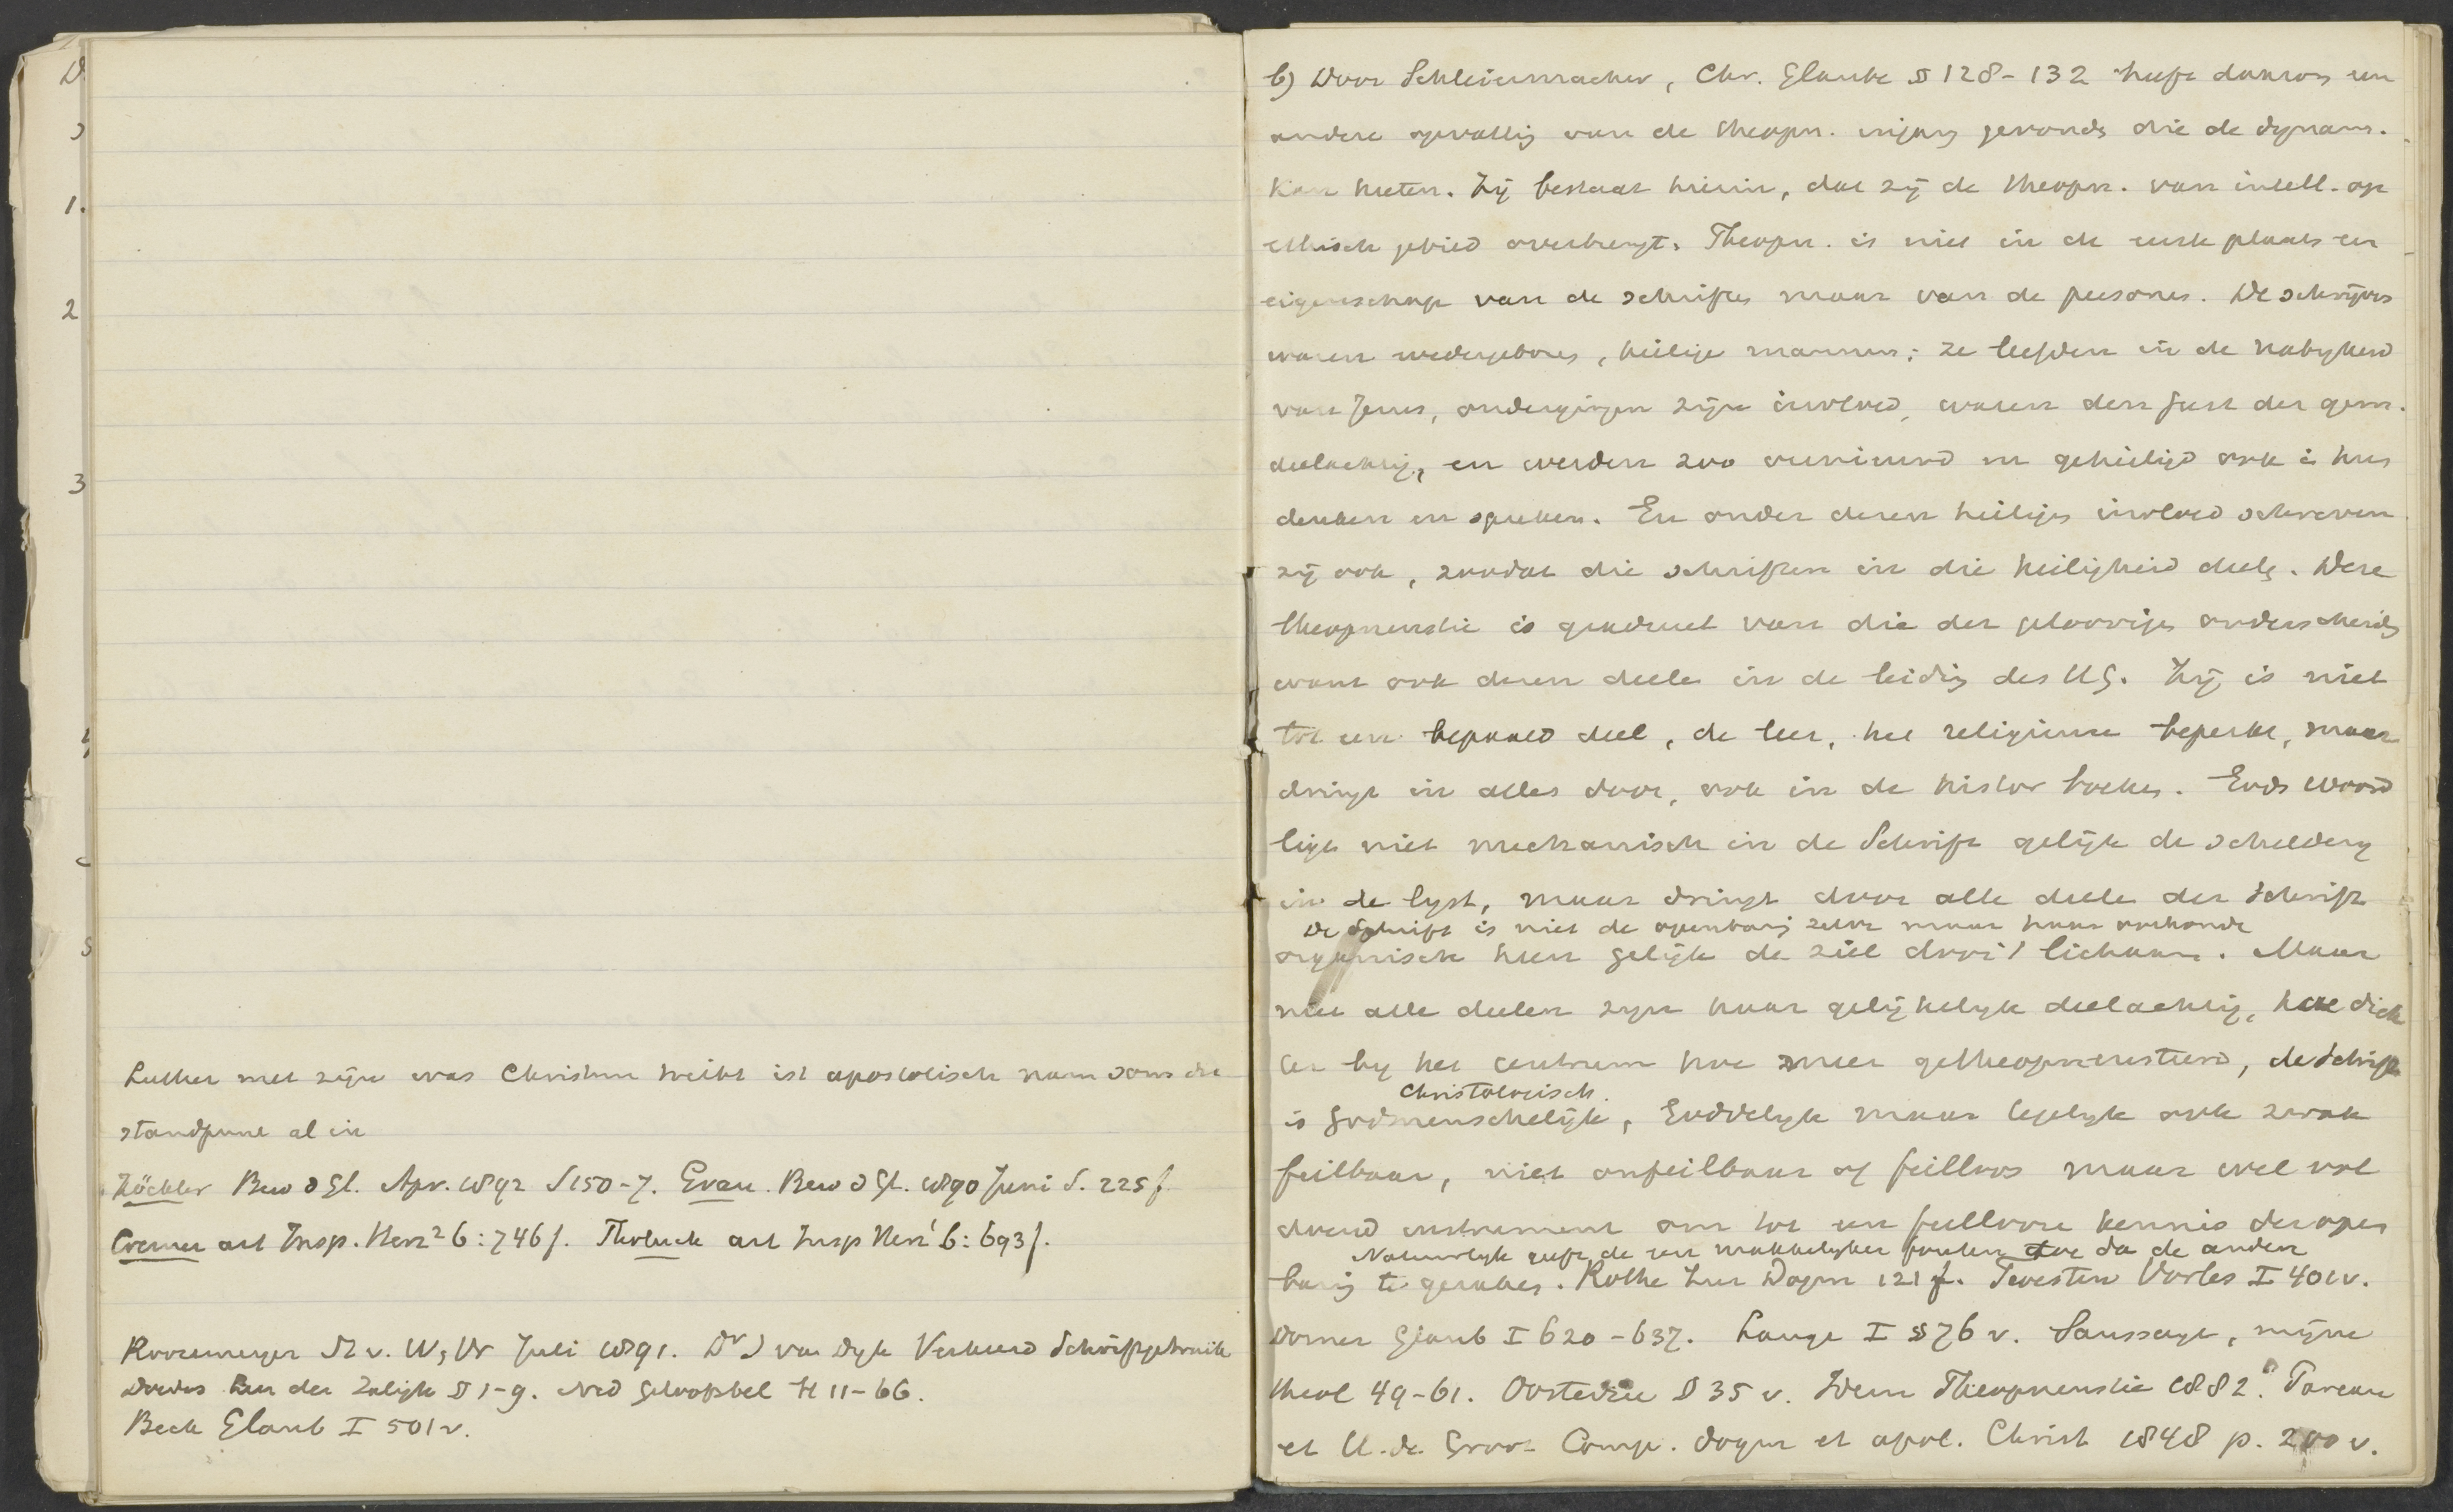 Luther met zijn was Christum treibt ist apostolisch nam soms dit
standpunt al in
Zöckler Bew d Gl. Apr. 1892 S 150-7. Grau. Bew d Gl. 1890 Juni S. 225 f.
Cremer art Insp. Herz² 6: 746 f. Tholuck art Insp Herz¹ 6: 693 f.
Roozemeyer St v. W, Vr Juli 1891. Dr J van Dyk Verkeerd Schriftgebruik
Doedes Leer der Zaligh § 1-9. Ned Geloofsbel H 11-66.
Beck Glaub I 501 v.
b) Door Schleiermacher, Chr. Glaube § 128-132 heeft daarom een
andere opvattig van de theopn. ingang gevonden die de dynam.
kan heeten. Zij bestaat hierin, dat zij de theopn. van intell. op
ethisch gebied overbrengt. Theopn. is niet in de eerste plaats een
eigenschap van de schriften maar van de personen. De schrijvers
waren wedergeboren, heilige mannen; ze leefden in de nabyheid
van Jezus, ondergingen zijn invloed, waren den Geest der gem.
deelachtig, en werden zoo vernieuwd en geheiligd ook i hun
denken en spreken. En onder dezen heiligen invloed schreven
zij ook, zoodat die schriften in die heiligheid deelen. Deze
theopneustie is gradueel van die der geloovigen onderscheiden
want ook dezen deelen in de leidig des HG. Zij is niet
tot een bepaald deel, de leer, het religieuse beperkt, maar
dringt in alles door, ook in de histor boeken. Gods Woord
ligt niet mechanisch in de Schrift gelijk de schilderij
in de lyst, maar dringt door alle deelen der Schrift
De Schrift is niet de openbarig zelve maar haar oorkonde
organisch heen gelijk de ziel door 't lichaam. Maar
niet alle deelen zyn haar gelijkelyk deelachtig, hoe dich
ter by het centrum hoe meer getheopneusteerd, de Schrift
Christologisch.
is Godmenschelijk, Goddelyk maar tegelyk ook zwak
feilbaar, niet onfeilbaar of feilloos maar wel vol
doend instrument om tot een feillooze kennis der open
Natuurlyk geeft de een makkelyker fouten toe dan de andere
barig te geraken. Rothe Zur Dogm 121 f. Twesten Vorles I 401 v.
Dorner Glaub I 620-637. Lange I § 76 v. Saussaye, mijne
theol 49-61. Oosterzee § 35 v. Idem Theopneustie 1882. Pareau
et H. de Groot Comp. dogm et apol. Christ 1848 p. 200 v.